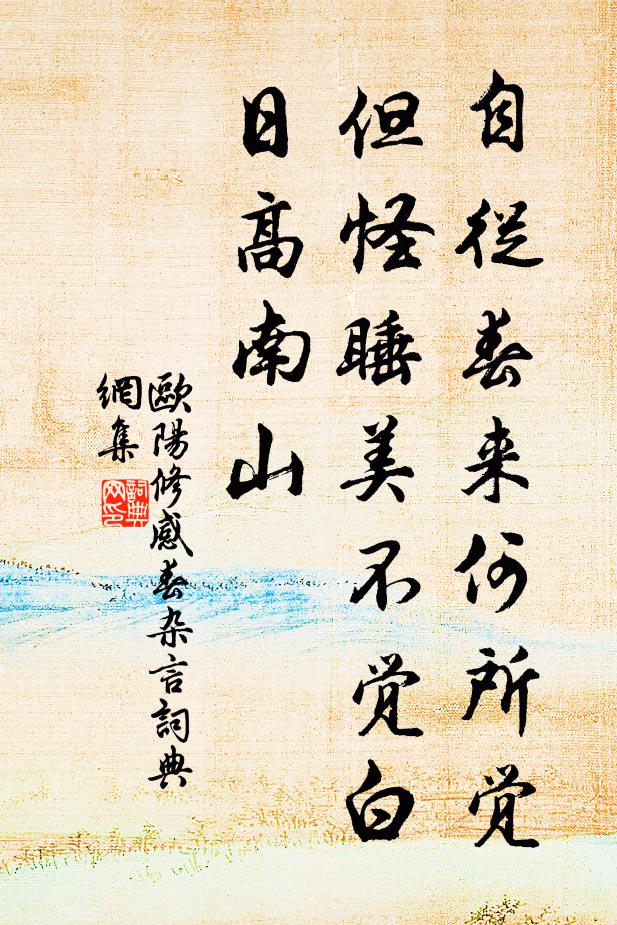 自從春来何所觉
但怪睡美不觉白
日高南山
歐陽修感春杂言詞典
網集
詞典
网印